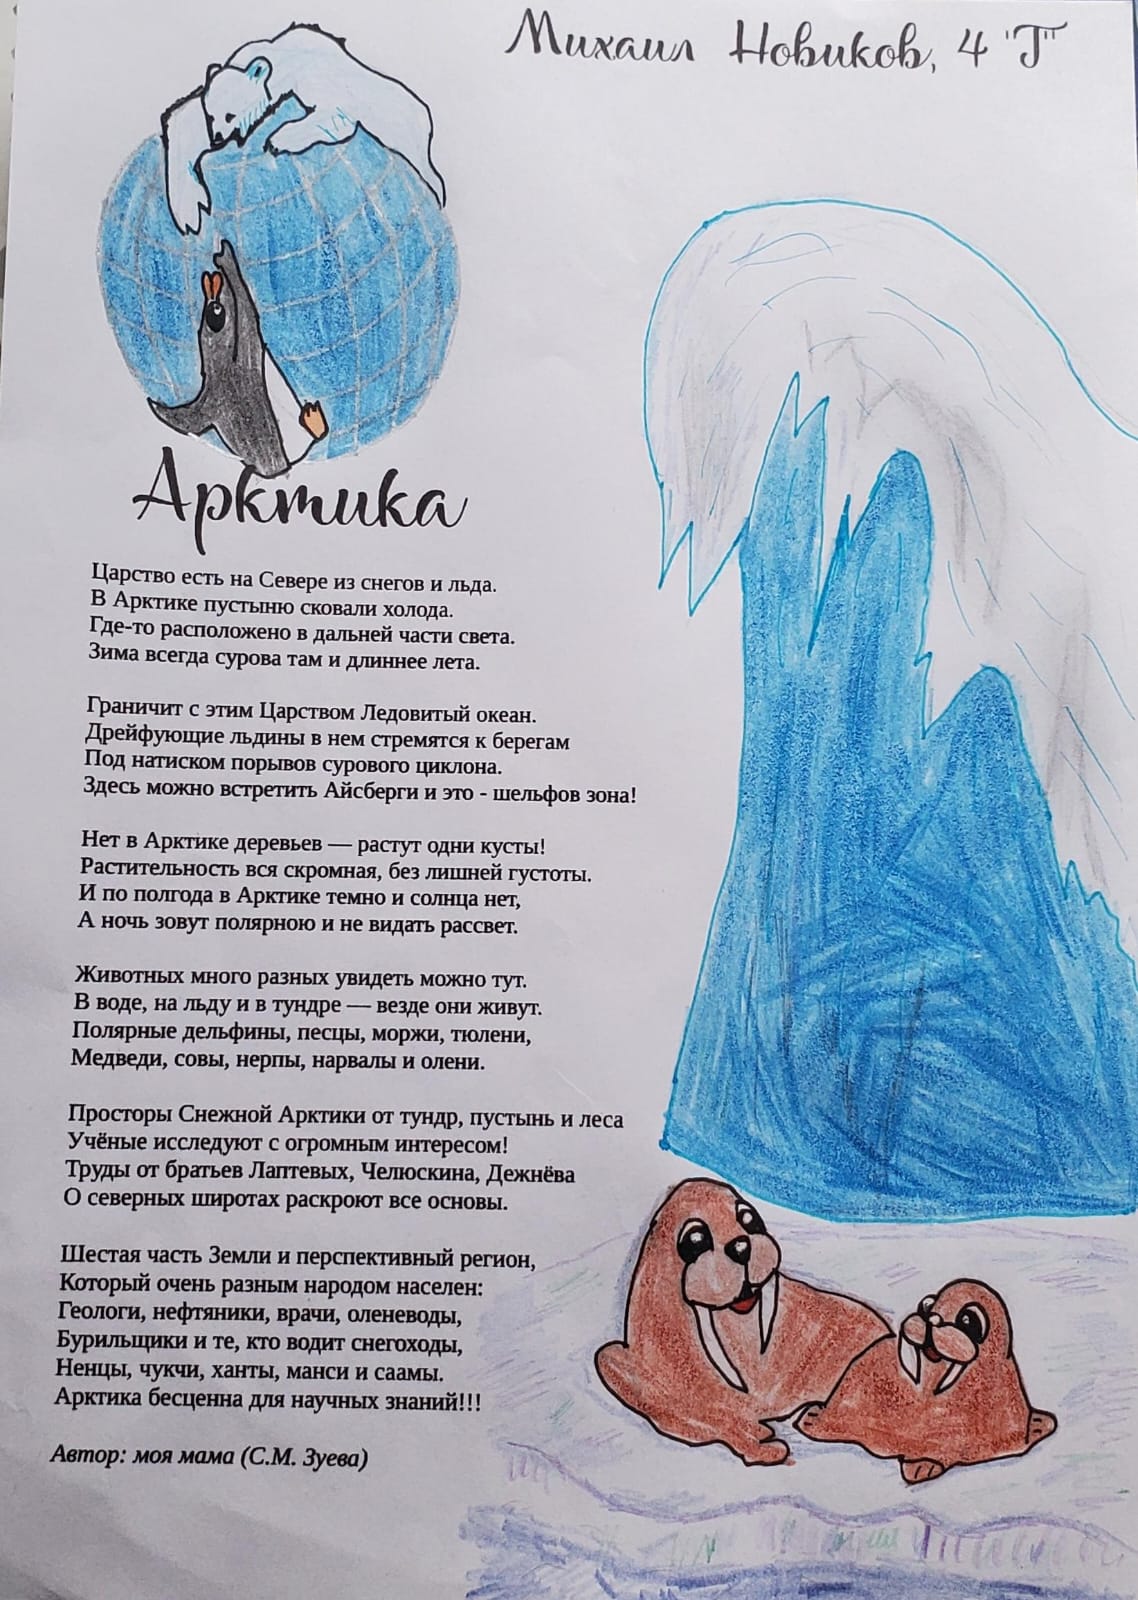 Михаил Новиков, 4 "Г"
Арктика
Царство есть на Севере из снегов и льда.
В Арктике пустыню сковали холода.
Где-то расположено в дальней части света.
Зима всегда сурова там и длиннее лета.
Граничит с этим Царством Ледовитый океан.
Дрейфующие льдины в нем стремятся к берегам
Под натиском порывов сурового циклона.
Здесь можно встретить Айсберги и это - шельфов зона!
Нет в Арктике деревьев — растут одни кусты!
Растительность вся скромная, без лишней густоты.
И по полгода в Арктике темно и солнца нет,
А ночь зовут полярною и не видать рассвет.
Животных много разных увидеть можно тут.
В воде, на льду и в тундре — везде они живут.
Полярные дельфины, песцы, моржи, тюлени,
Медведи, совы, нерпы, нарвалы и олени.
Просторы Снежной Арктики от тундр, пустынь и леса
Учёные исследуют с огромным интересом!
Труды от братьев Лаптевых, Челюскина, Дежнёва
О северных широтах раскроют все основы.
Шестая часть Земли и перспективный регион,
Который очень разным народом населен:
Геологи, нефтяники, врачи, оленеводы,
Бурильщики и те, кто водит снегоходы,
Ненцы, чукчи, ханты, манси и саамы.
Арктика бесценна для научных знаний!!!
Автор: моя мама (С.М. Зуева)